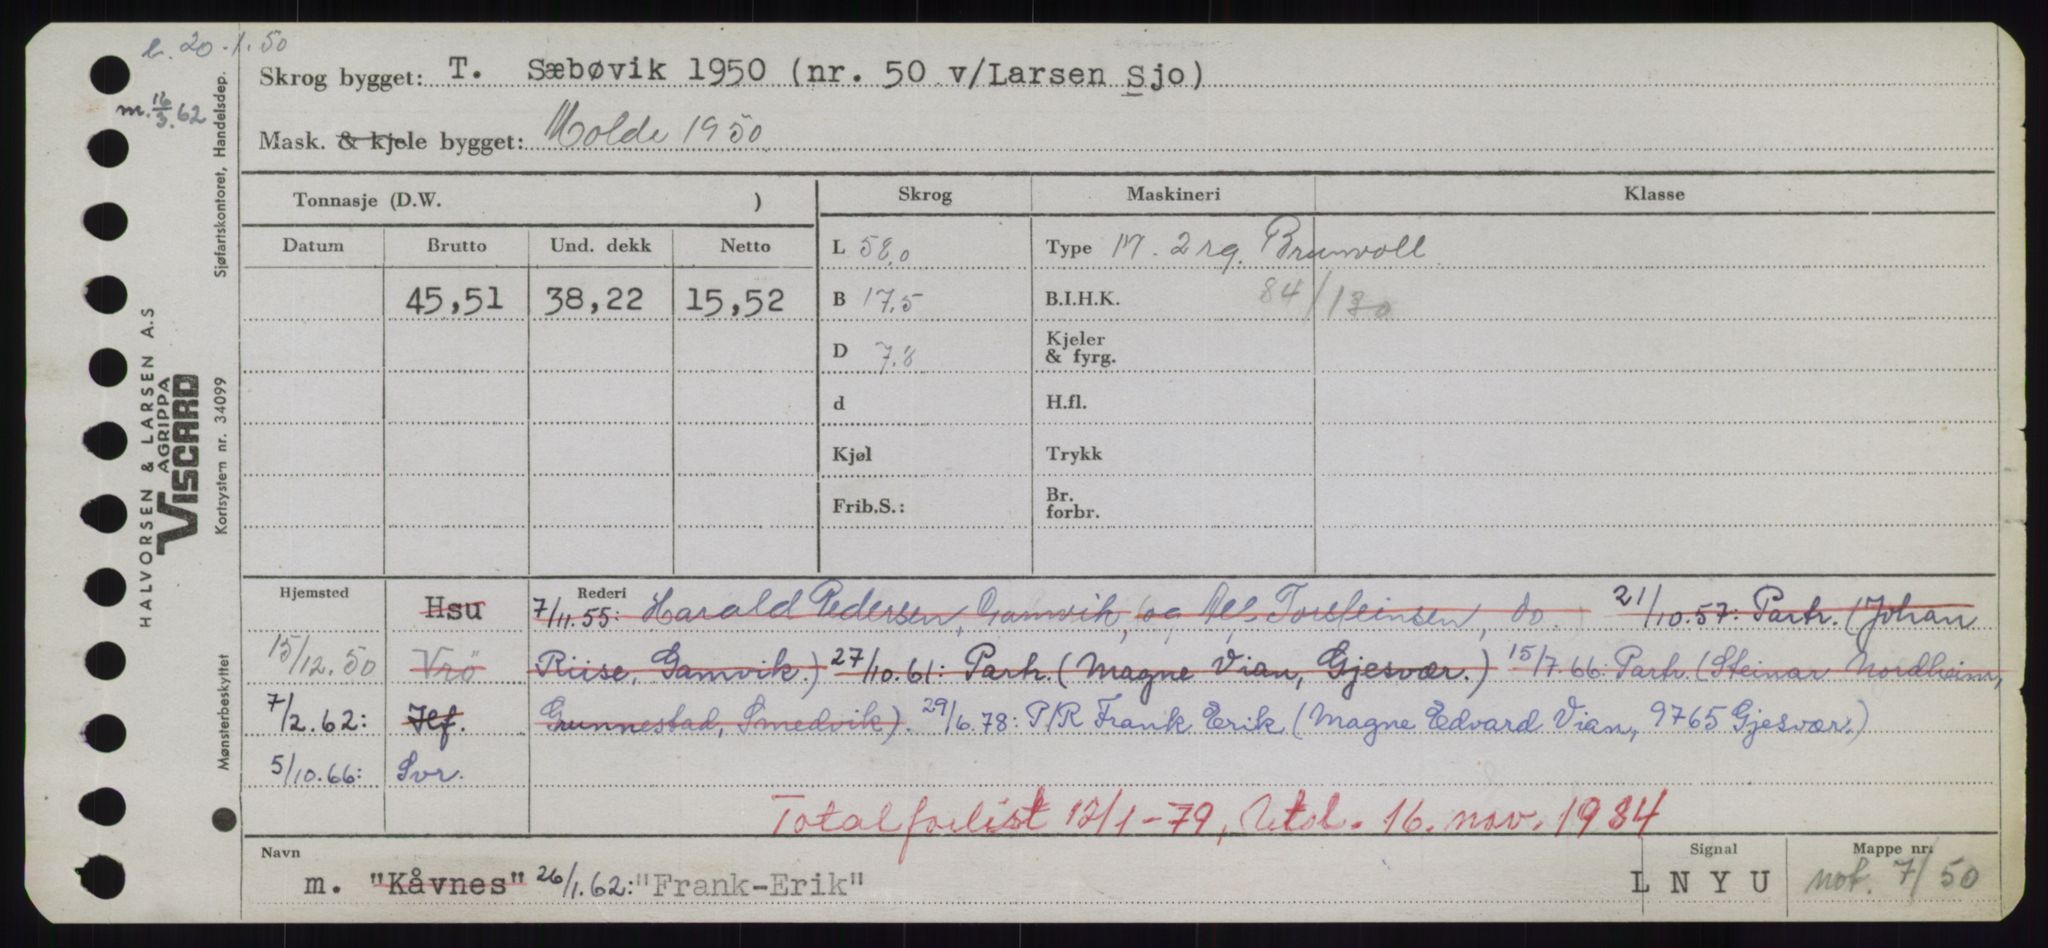 l. 20-1.50
m. 16/3.62
Skrog bygget: T. Sæbøvik 1950 (nr. 50 v/Larsen Sjo)
Mask. & kjele bygget: Molde 1950
Tonnasje (D.W. )
Skrog
Maskineri
Klasse
Datum
Brutto
Und. dekk
Netto
45,51
38,22
15,52
L 58,0
B 17,5
D 7,8
d
Kjøl
Frib.S.:
Type M. 2 sg. Brunvoll
B.I.H.K. 84/130
Kjeler
& fyrg.
H.fl.
Trykk
Br.
forbr.
Hjemsted
Rederi
Hsu
7/11.55: Harald Pedersen, Gamvik, og Torsteinsen, do. 21/10.57: Partr. (Johan
15/12.50 Vrö
Riise, Gamvik.) 27/10.61: Partr. (Magne Vian, Gjesvær.) 15/7.66: Partr. (Steinar Nordheim,
7/2.62: Hf.
Grunnestad, Smedvik). 29/6.78: P/R Frank Erik (Magne Edvard Vian, 9765 Gjesvær.)
5/10.66: Svr.
Totalforlist 12/1-79, Utsl. 16. nov. 1984
Navn
m. "Kåvnes" 26/1.62: "Frank-Erik"
Signal
L N Y U
Mappe nr:
not. 7/50
HALVORSEN & LARSEN A.S
AGRIPPA
VISCARD
Sjøfartskontoret, Handelsdep.
Kortsystem nr. 34099
Mønsterbeskyttet